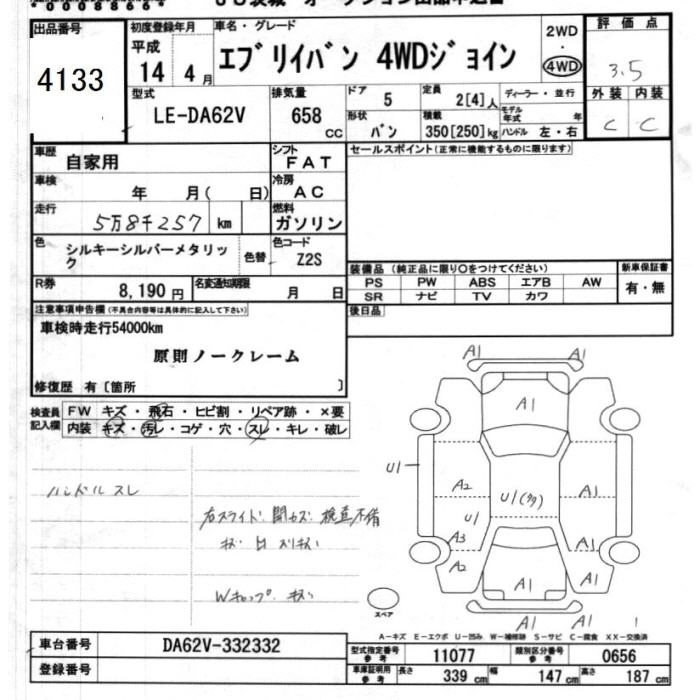 出品番号
4133
初度登録年月
平成
14 4月
車名・グレード
エブリイバン 4WDジョイン
2WD
・
4WD
評価点
3.5
外装 内装
C C
型式
LE-DA62V
排気量
658 cc
ドア 5
形状 バン
定員 2[4]人
積載 350[250]kg
ディーラー・並行
モデル年式 年
ハンドル 左・右
車歴 自家用
シフト FAT
セールスポイント(正常に機能するものに限ります)
車検 年 月( 日)
冷房 AC
走行 5万8千257 km
燃料 ガソリン
色 シルキーシルバーメタリック
色替
色コード Z2S
装備品(純正品に限り○をつけてください)
新車保証書
PS PW ABS エアB AW
有・無
SR ナビ TV カワ
R券 8,190円
名変通知期限 月 日
後日品
注意事項申告欄(不具合内容等は具体的に記入して下さい)
車検時走行54000km
原則ノークレーム
修復歴 有[箇所 ]
検査員記入欄
FW キズ・飛石・ヒビ割・リペア跡・×要
内装 キズ・汚レ・コゲ・穴・スレ・キレ・破レ
ハンドル スレ
右スライド
Wキャップ キズ
A1 A1
A1
U1
A2 U1(多) A1
U1
A3 A1
A2 A1 A1
A1
スペア
1
A-キズ E-エクボ U-凹み W-補修跡 S-サビ C-腐食 XX-交換済
車台番号 DA62V-332332
型式指定番号 参考 11077
類別区分番号 参考 0656
登録番号
車庫証明用 参考 長さ 339cm 幅 147cm 高さ 187cm